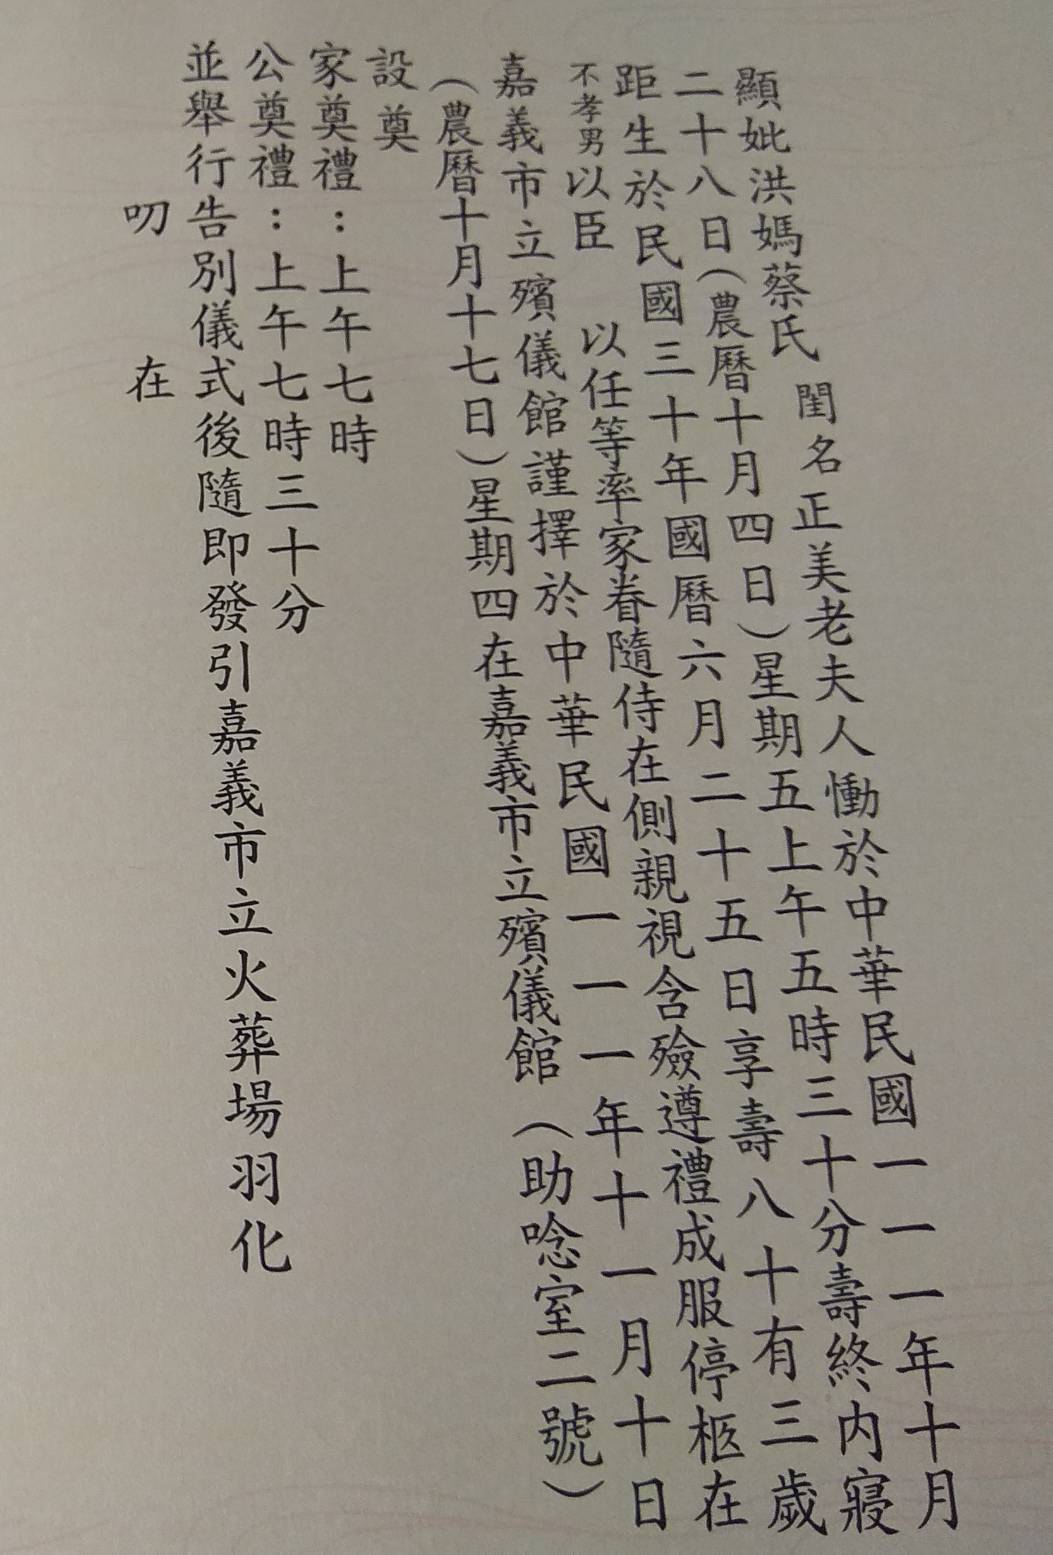 顯妣洪媽蔡氏閨名正美老夫人慟於中華民國一一一年十月
二十八日(農曆十月四日)星期五上午五時三十分壽終內寢
距生於民國三十年國曆六月二十五日享壽八十有三歲
不孝男以臣 以任等率家眷隨侍在側親視含殮遵禮成服停柩在
嘉義市立殯儀館謹擇於中華民國一一一年十一月十日
(農曆十月十七日)星期四在嘉義市立殯儀館(助唸室二號)
設奠
家奠禮:上午七時
公奠禮:上午七時三十分
並舉行告別儀式後隨即發引嘉義市立火葬場羽化
叨 在